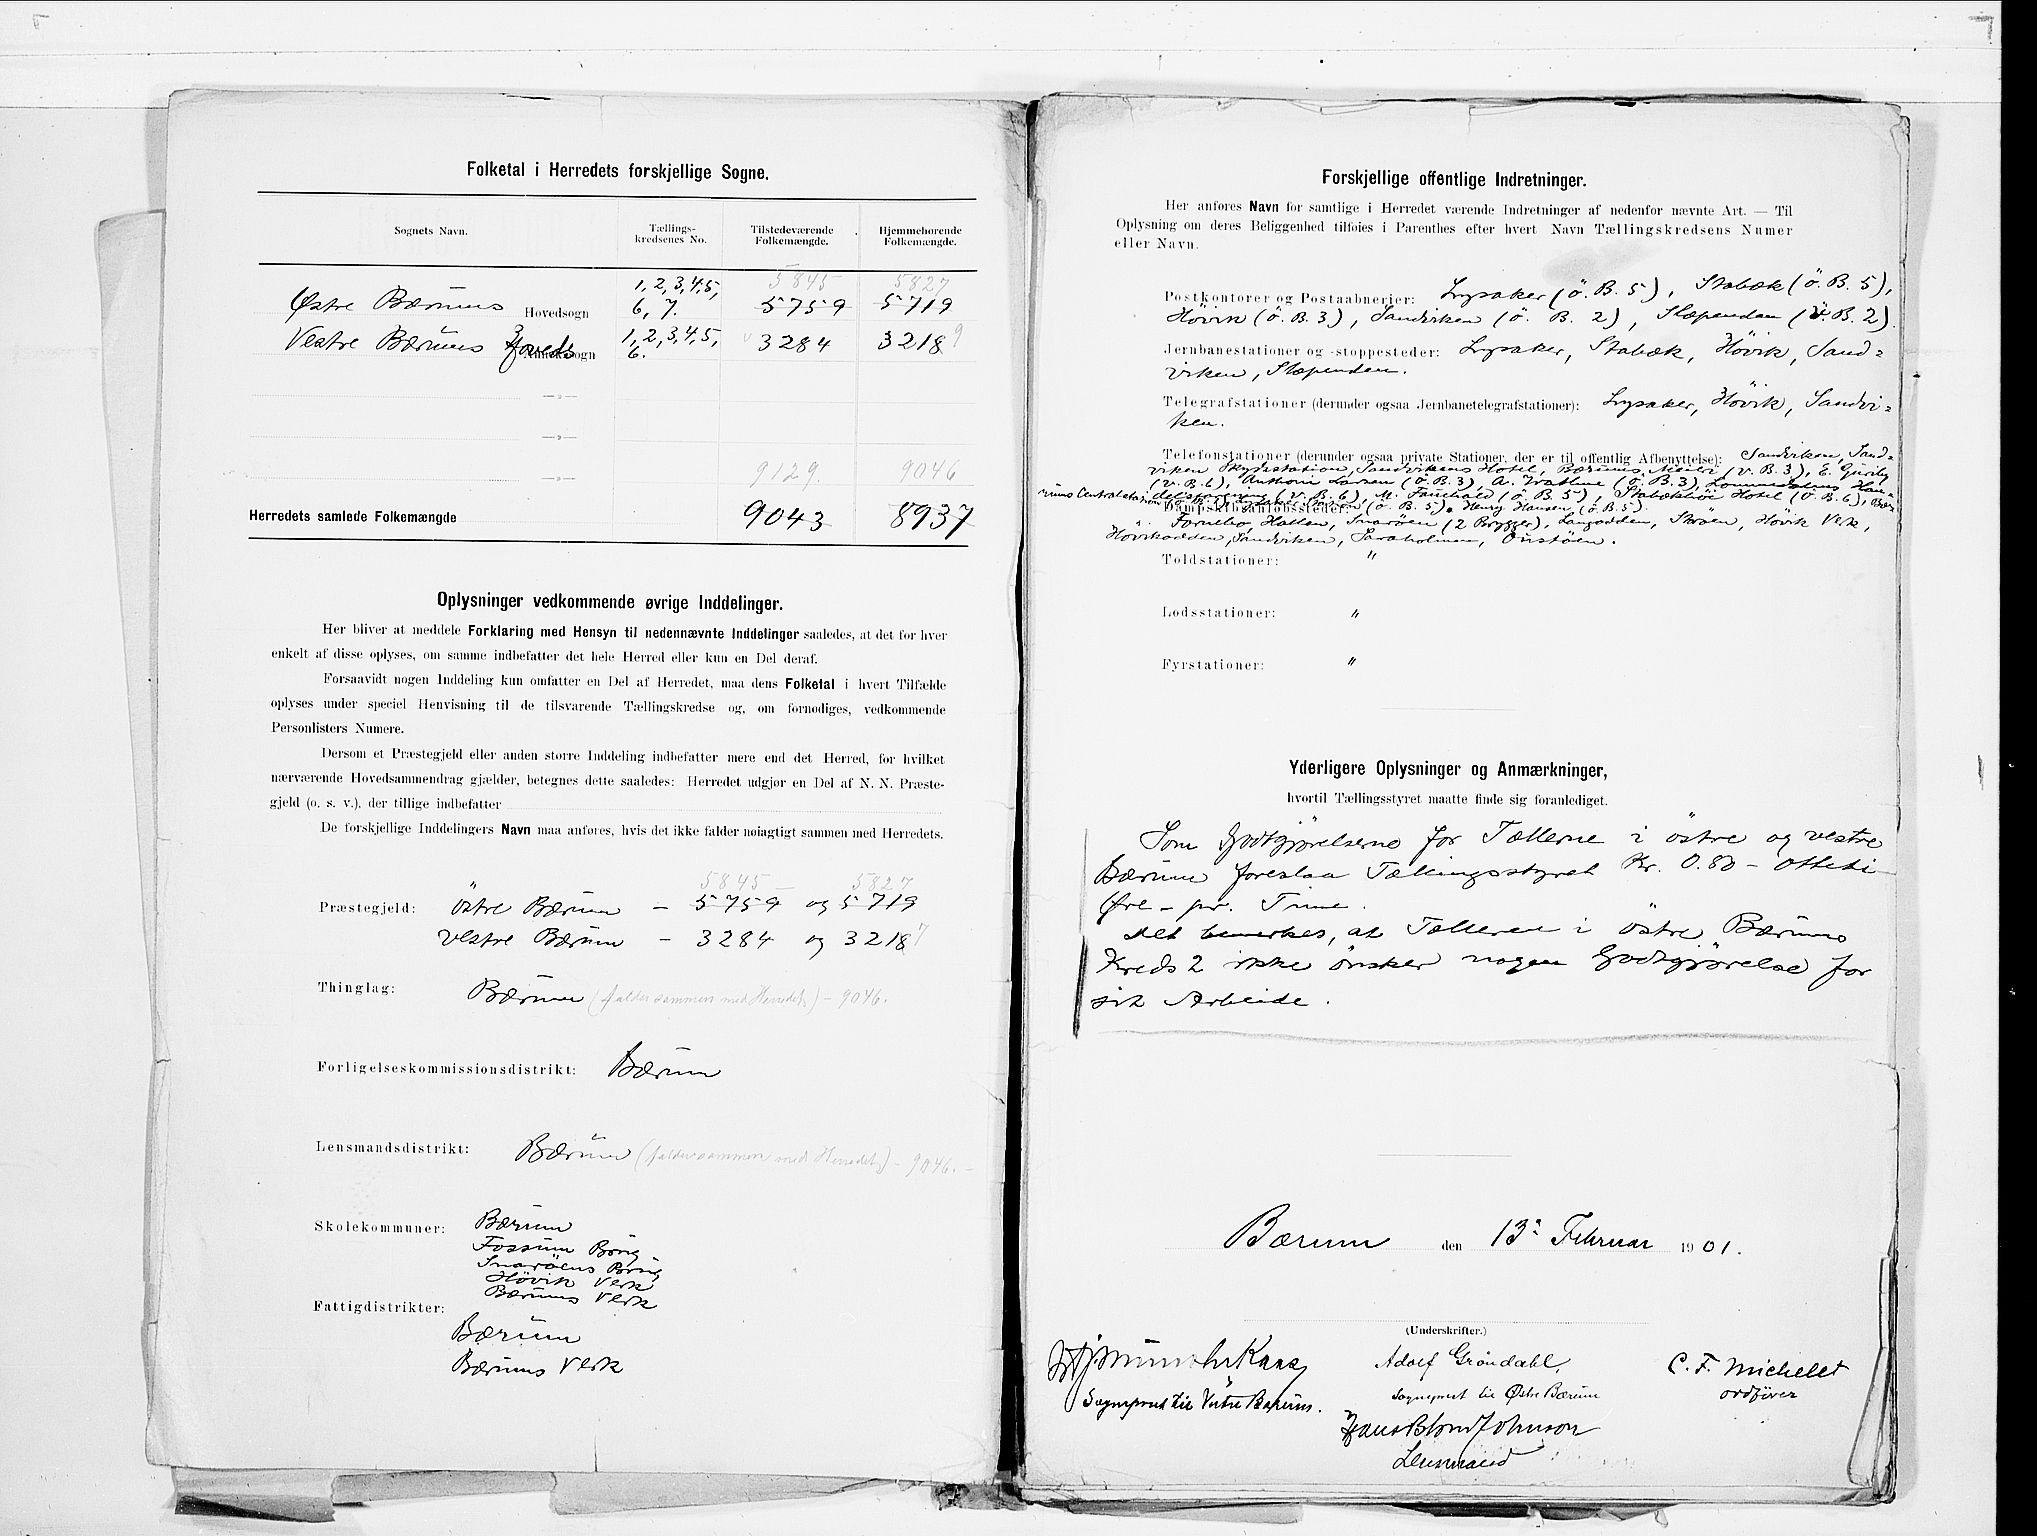 Folketal i Herredets forskjellige Sogne.
Sognets Navn.
Tællings-
kredsenes No.
Tilstedeværende
Folkemængde.
Hjemmehørende
Folkemængde.
5845 5827
Østre Bærums Hovedsogn 1, 2, 3, 4, 5, 6, 7. 5759 5719
Vestre Bærums Hoveds sogn 1, 2, 3, 4, 5, 6. 3284 3218 9
—„—
—„—
9129. 9046
—„—
Herredets samlede Folkemængde 9043 8937
Oplysninger vedkommende øvrige Inddelinger.
Her bliver at meddele Forklaring med Hensyn til nedennævnte Inddelinger saaledes, at det for hver
enkelt af disse oplyses, om samme indbefatter det hele Herred eller kun en Del deraf.
Forsaavidt nogen Inddeling kun omfatter en Del af Herredet, maa dens Folketal i hvert Tilfælde
oplyses under speciel Henvisning til de tilsvarende Tællingskredse og, om fornødiges, vedkommende
Personlisters Numere.
Dersom et Præstegjeld eller anden større Inddeling indbefatter mere end det Herred, for hvilket
nærværende Hovedsammendrag gjælder, betegnes dette saaledes: Herredet udgjør en Del af N. N. Præste-
gjeld (o. s. v.), der tillige indbefatter
De forskjellige Inddelingers Navn maa anføres, hvis det ikke falder nøiagtigt sammen med Herredets.
5845 — 5827
Præstegjeld: östre Bærum — 5759 og 5719
vestre Bærum — 3284 og 3218 7
Thinglag: Bærum (falder sammen med Herredet) — 9046.
Forligelseskommissionsdistrikt: Bærum
Lensmandsdistrikt: Bærum (falder sammen med Herredet) — 9046. —
Skolekommuner: Bærum
Fossum Brug
Snaröens Brug
Hövik Verk
Bærums Verk
Fattigdistrikter:
Bærum
Bærums Verk
Forskjellige offentlige Indretninger.
Her anføres Navn for samtlige i Herredet værende Indretninger af nedenfor nævnte Art. — Til
Oplysning om deres Beliggenhed tilføies i Parenthes efter hvert Navn Tællingskredsens Numer
eller Navn.
Postkontorer og Postaabnerier: Lysaker (ö. B. 5), Stabæk (ö. B. 5),
Hövik (ö. B. 3), Sandviken (ö. B. 2), Slæpenden (v. B. 2).
Jernbanestationer og -stoppesteder: Lysaker, Stabæk, Hövik, Sand=
viken, Slæpenden.
Telegrafstationer (derunder ogsaa Jernbanetelegrafstationer): Lysaker, Hövik, Sandvi=
ken.
Telefonstationer (derunder ogsaa private Stationer, der er til offentlig Afbenyttelse): Sandviken, Sand=
viken Skydsstation, Sandvikens Hotel, Bærums Meieri (v. B. 3), E. Gjuiby
(v. B. 6), Anthoni Larsen (ö. B. 3), A. Wathne (ö. B. 3), Lommedalens Han=
delsforening (v. B. 6), M. Fauchald (ö. B. 5), Stabækhöi Hotel (ö. B. 6), Bær
ums Centralstation (ö. B. 2), Lysaker Station (ö. B. 5), Henry Hansen (ö. B. 5)
Dampskibsanløbssteder:
Fornebo, Halden, Snaröen (2 Brygger), Langodden, Ströen, Hövik Verk,
Hövikodden, Sandviken, Saraholmen, Önstöen.
Toldstationer: "
Lodsstationer: "
Fyrstationer: "
Yderligere Oplysninger og Anmærkninger,
hvortil Tællingsstyret maatte finde sig foranlediget.
Som Godtgjörelserne for Tællerne i östre og vestre
Bærum foreslaa Tællingsstyret Kr. 0.80 — otteti
Öre — pr. Time.
Det bemerkes, at Tælleren i östre Bærums
Kreds 2 ikke önsker nogen Godtgjörelse for
sit Arbeide.
Bærum den 13de Februar 1901.
(Underskrifter.)
Munthe Kaas Adolf Gröndahl. C. F. Michelet
Sogneprest til Vestre Bærum. Sogneprest til Östre Bærum ordförer
Hans Blom Johnson
Lensmand